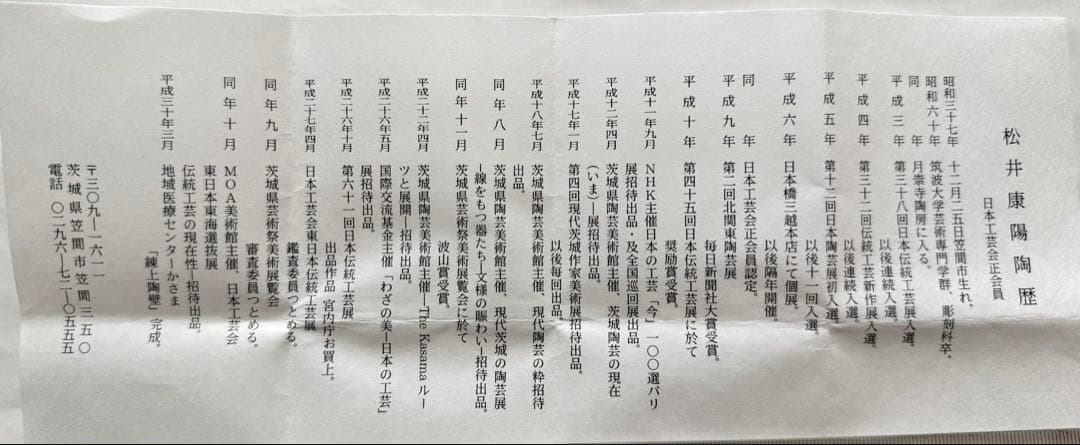 松井康陽陶歴
日本工芸会正会員
昭和三十七年 十二月二五日笠間市生れ。
昭和六十年 筑波大学芸術専門学群、彫刻科卒。
同年 月崇寺陶房に入る。
平成三年 第三十八回日本伝統工芸展入選。
以後連続入選。
平成四年 第三十二回伝統工芸新作展入選。
以後連続入選。
平成五年 第十二回日本陶芸展初入選。
以後十一回入選。
平成六年 日本橋三越本店にて個展。
以後隔年開催。
同年 日本工芸会正会員認定。
平成九年 第二回北関東陶芸展
毎日新聞社大賞受賞。
平成十年 第四十五回日本伝統工芸展に於て
奨励賞受賞。
平成十一年九月 NHK主催日本の工芸「今」一〇〇選パリ
展招待出品・及全国巡回展出品。
平成十二年四月 茨城県陶芸美術館主催、茨城陶芸の現在
(いま)―展招待出品。
平成十七年一月 第四回現代茨城作家美術展招待出品。
以後毎回出品。
平成十八年七月 茨城県陶芸美術館主催、現代陶芸の粋招待
出品。
同年八月 茨城県陶芸美術館主催、現代茨城の陶芸展
―線をもつ器たち―文様の賑わい―招待出品。
同年十一月 茨城県芸術祭美術展覧会に於て
波山賞受賞。
平成二十二年四月 茨城県陶芸美術館主催―The Kasama ルー
ツと展開―招待出品。
平成二十六年五月 国際交流基金主催「わざの美―日本の工芸」
展招待出品。
平成二十六年十月 第六十一回日本伝統工芸展
出品作品 宮内庁お買上。
平成二十七年四月 日本工芸会東日本伝統工芸展
鑑査委員つとめる。
同年九月 茨城県芸術祭美術展覧会
審査委員つとめる。
同年十月 MOA美術館主催、日本工芸会
東日本東海選抜展
伝統工芸の現在性―招待出品。
平成三十年三月 地域医療センターかさま
「練上陶壁」完成。
〒三〇九―一六一一
茨城県笠間市笠間二三五〇
電話 〇二九六―七二―〇五五五